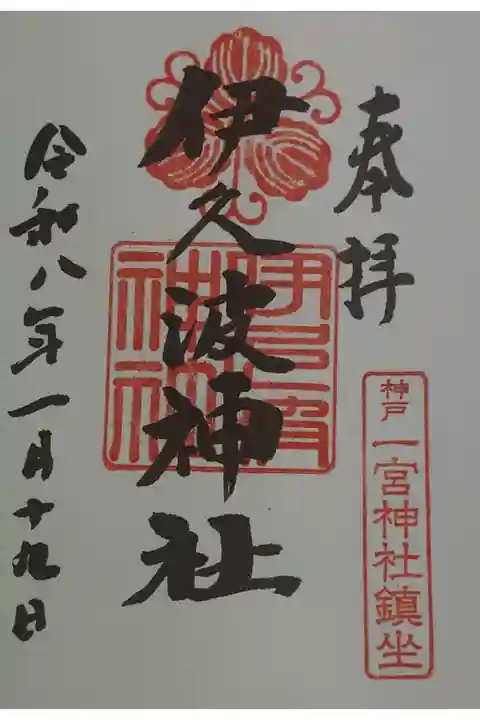 奉拝
神戸 一宮神社鎮坐
伊久波神社
伊久波神社
令和八年一月十九日